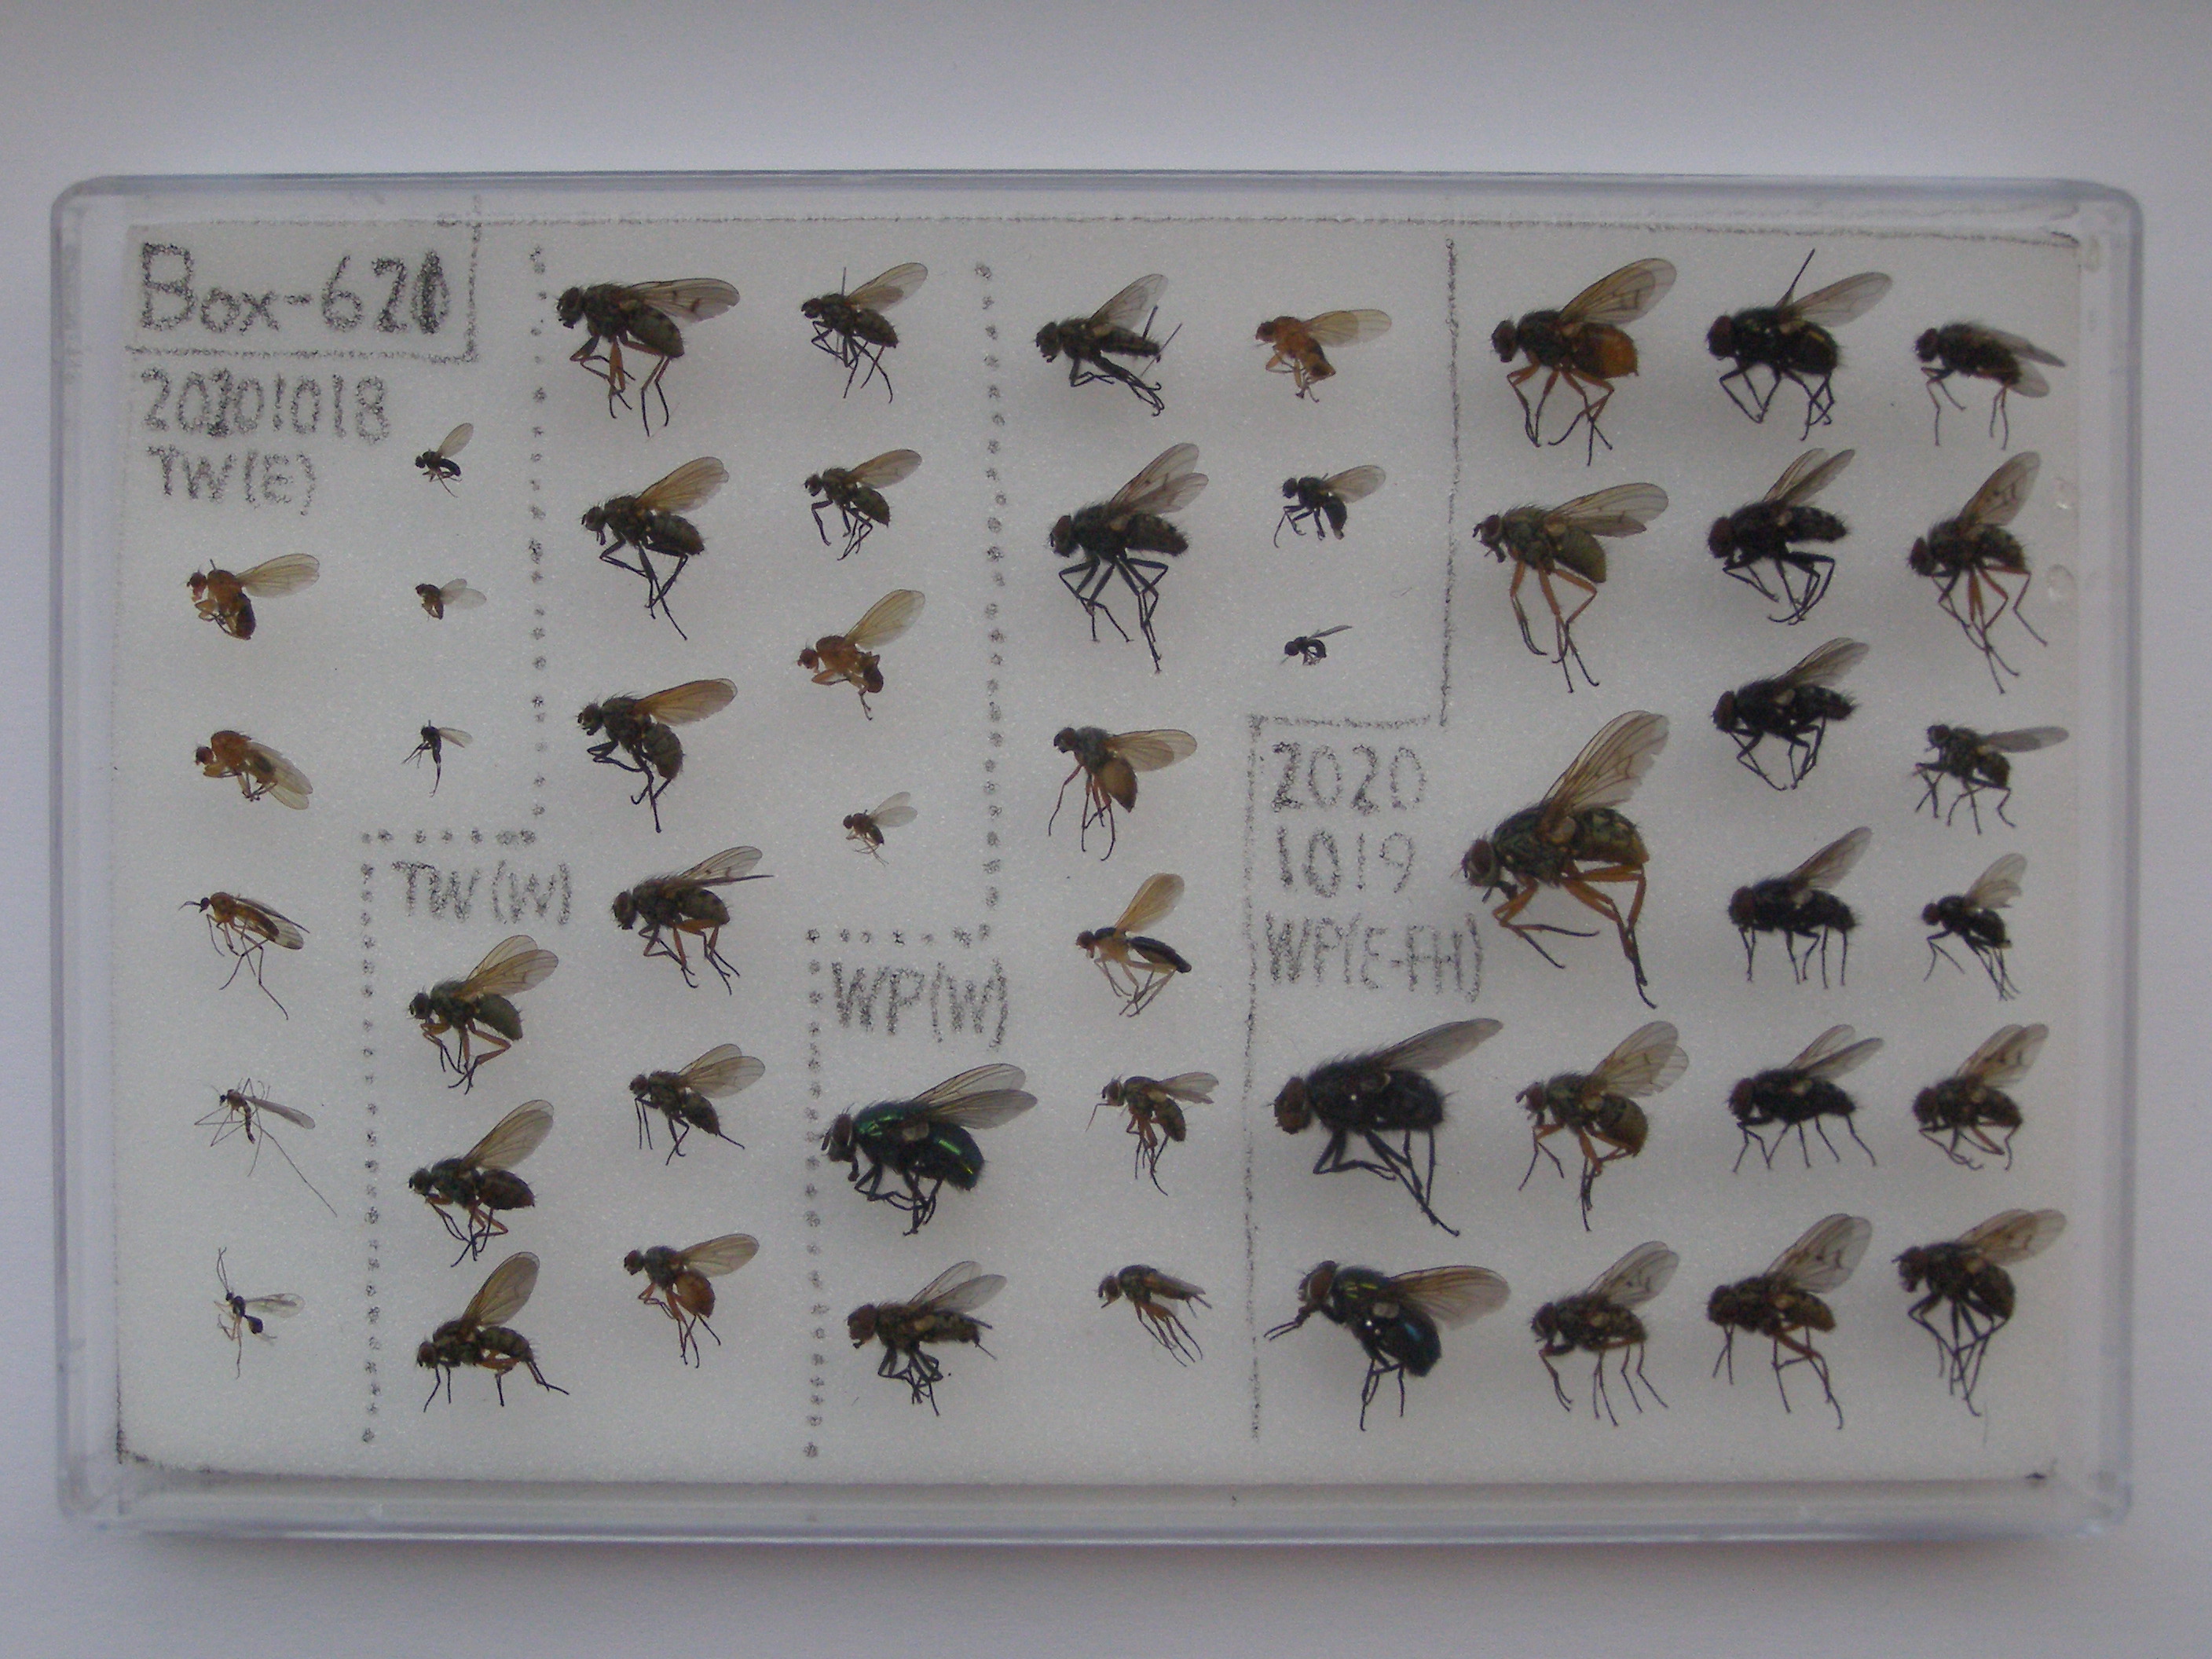 Box-621
20201018
TW(E)
TW(W)
WP(W)
2020
1019
WP(E-FH)